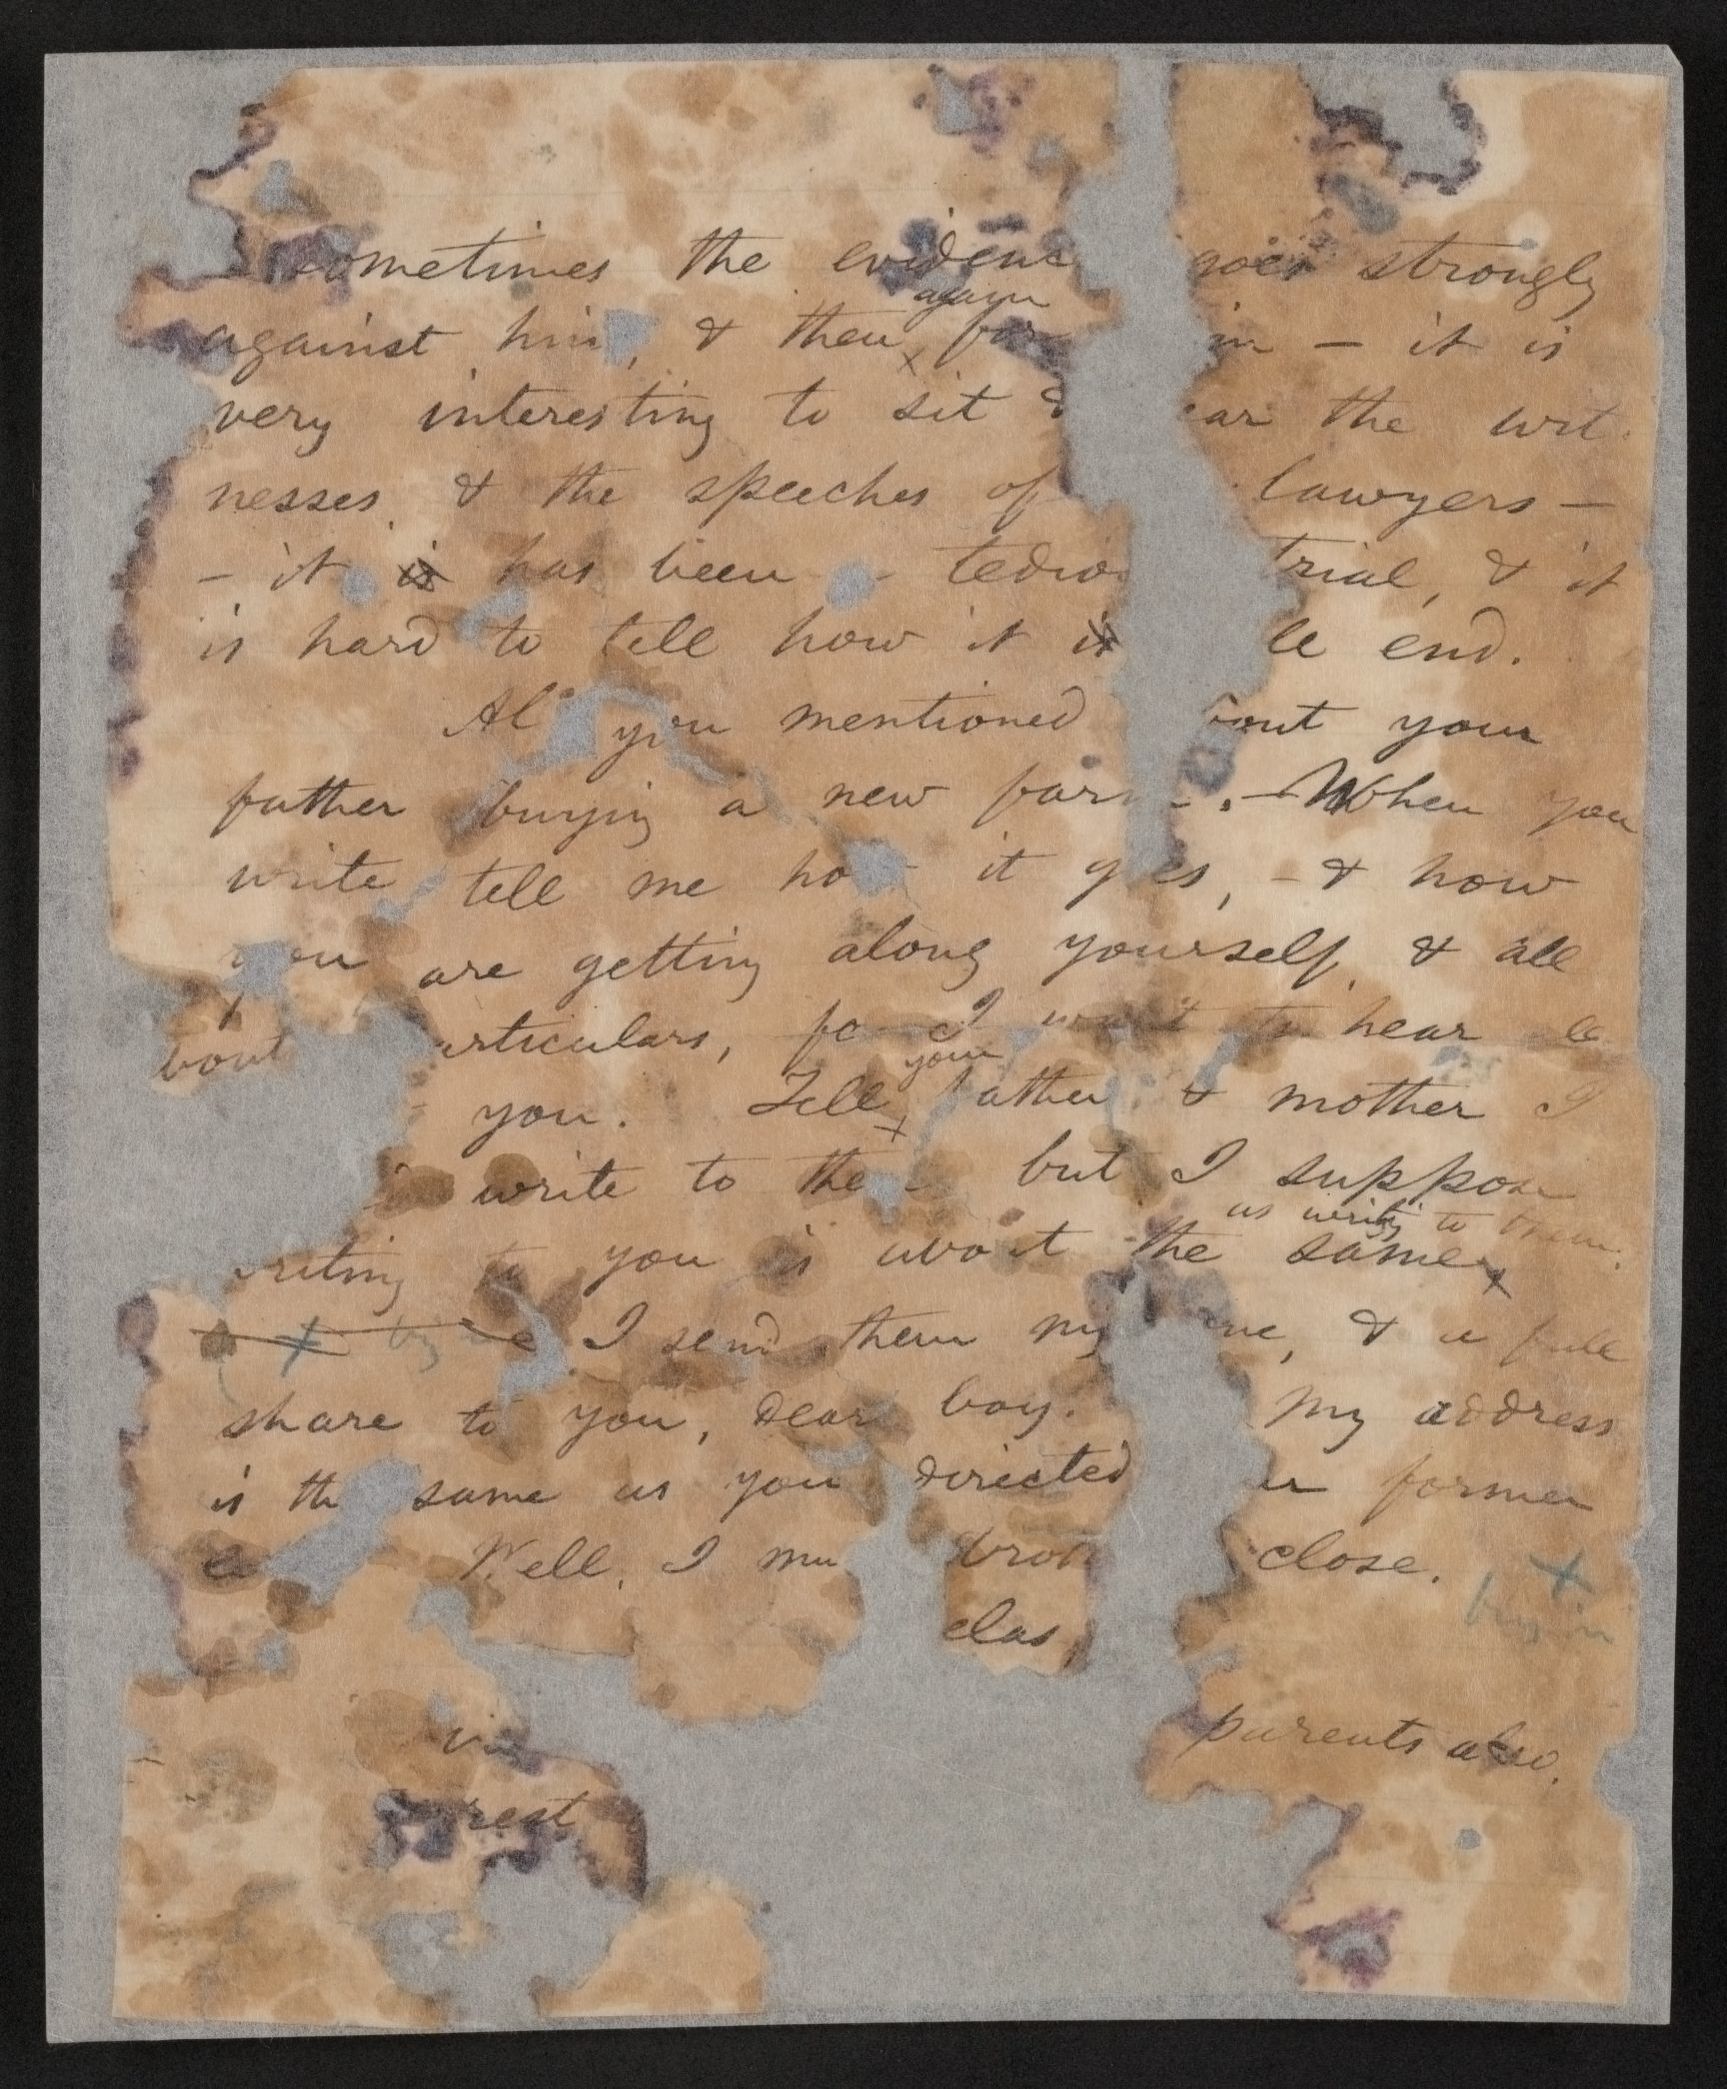 sometimes the evidenc goes strongly
again
against him, & then for im – it is
very interesting to sit & ear the wit
nesses & the speeches of lawyers –
– it is has been tedio trial, & it
is hard to tell how it is ll end.
Al you mentioned bout your
father buying a new farm. – When you
write tell me ho it g es, – & how
you are getting along yourself, & all
rticulars, fo I want to hear
bout
your
you. Tell ather & mother I
write to the but I suppose
as writing to them.
riting to you is about the same
I send them my ve, & a full
share to you, dear boy. My address
is th same as you directed r former
Well, I mu close.
parents also.
rest